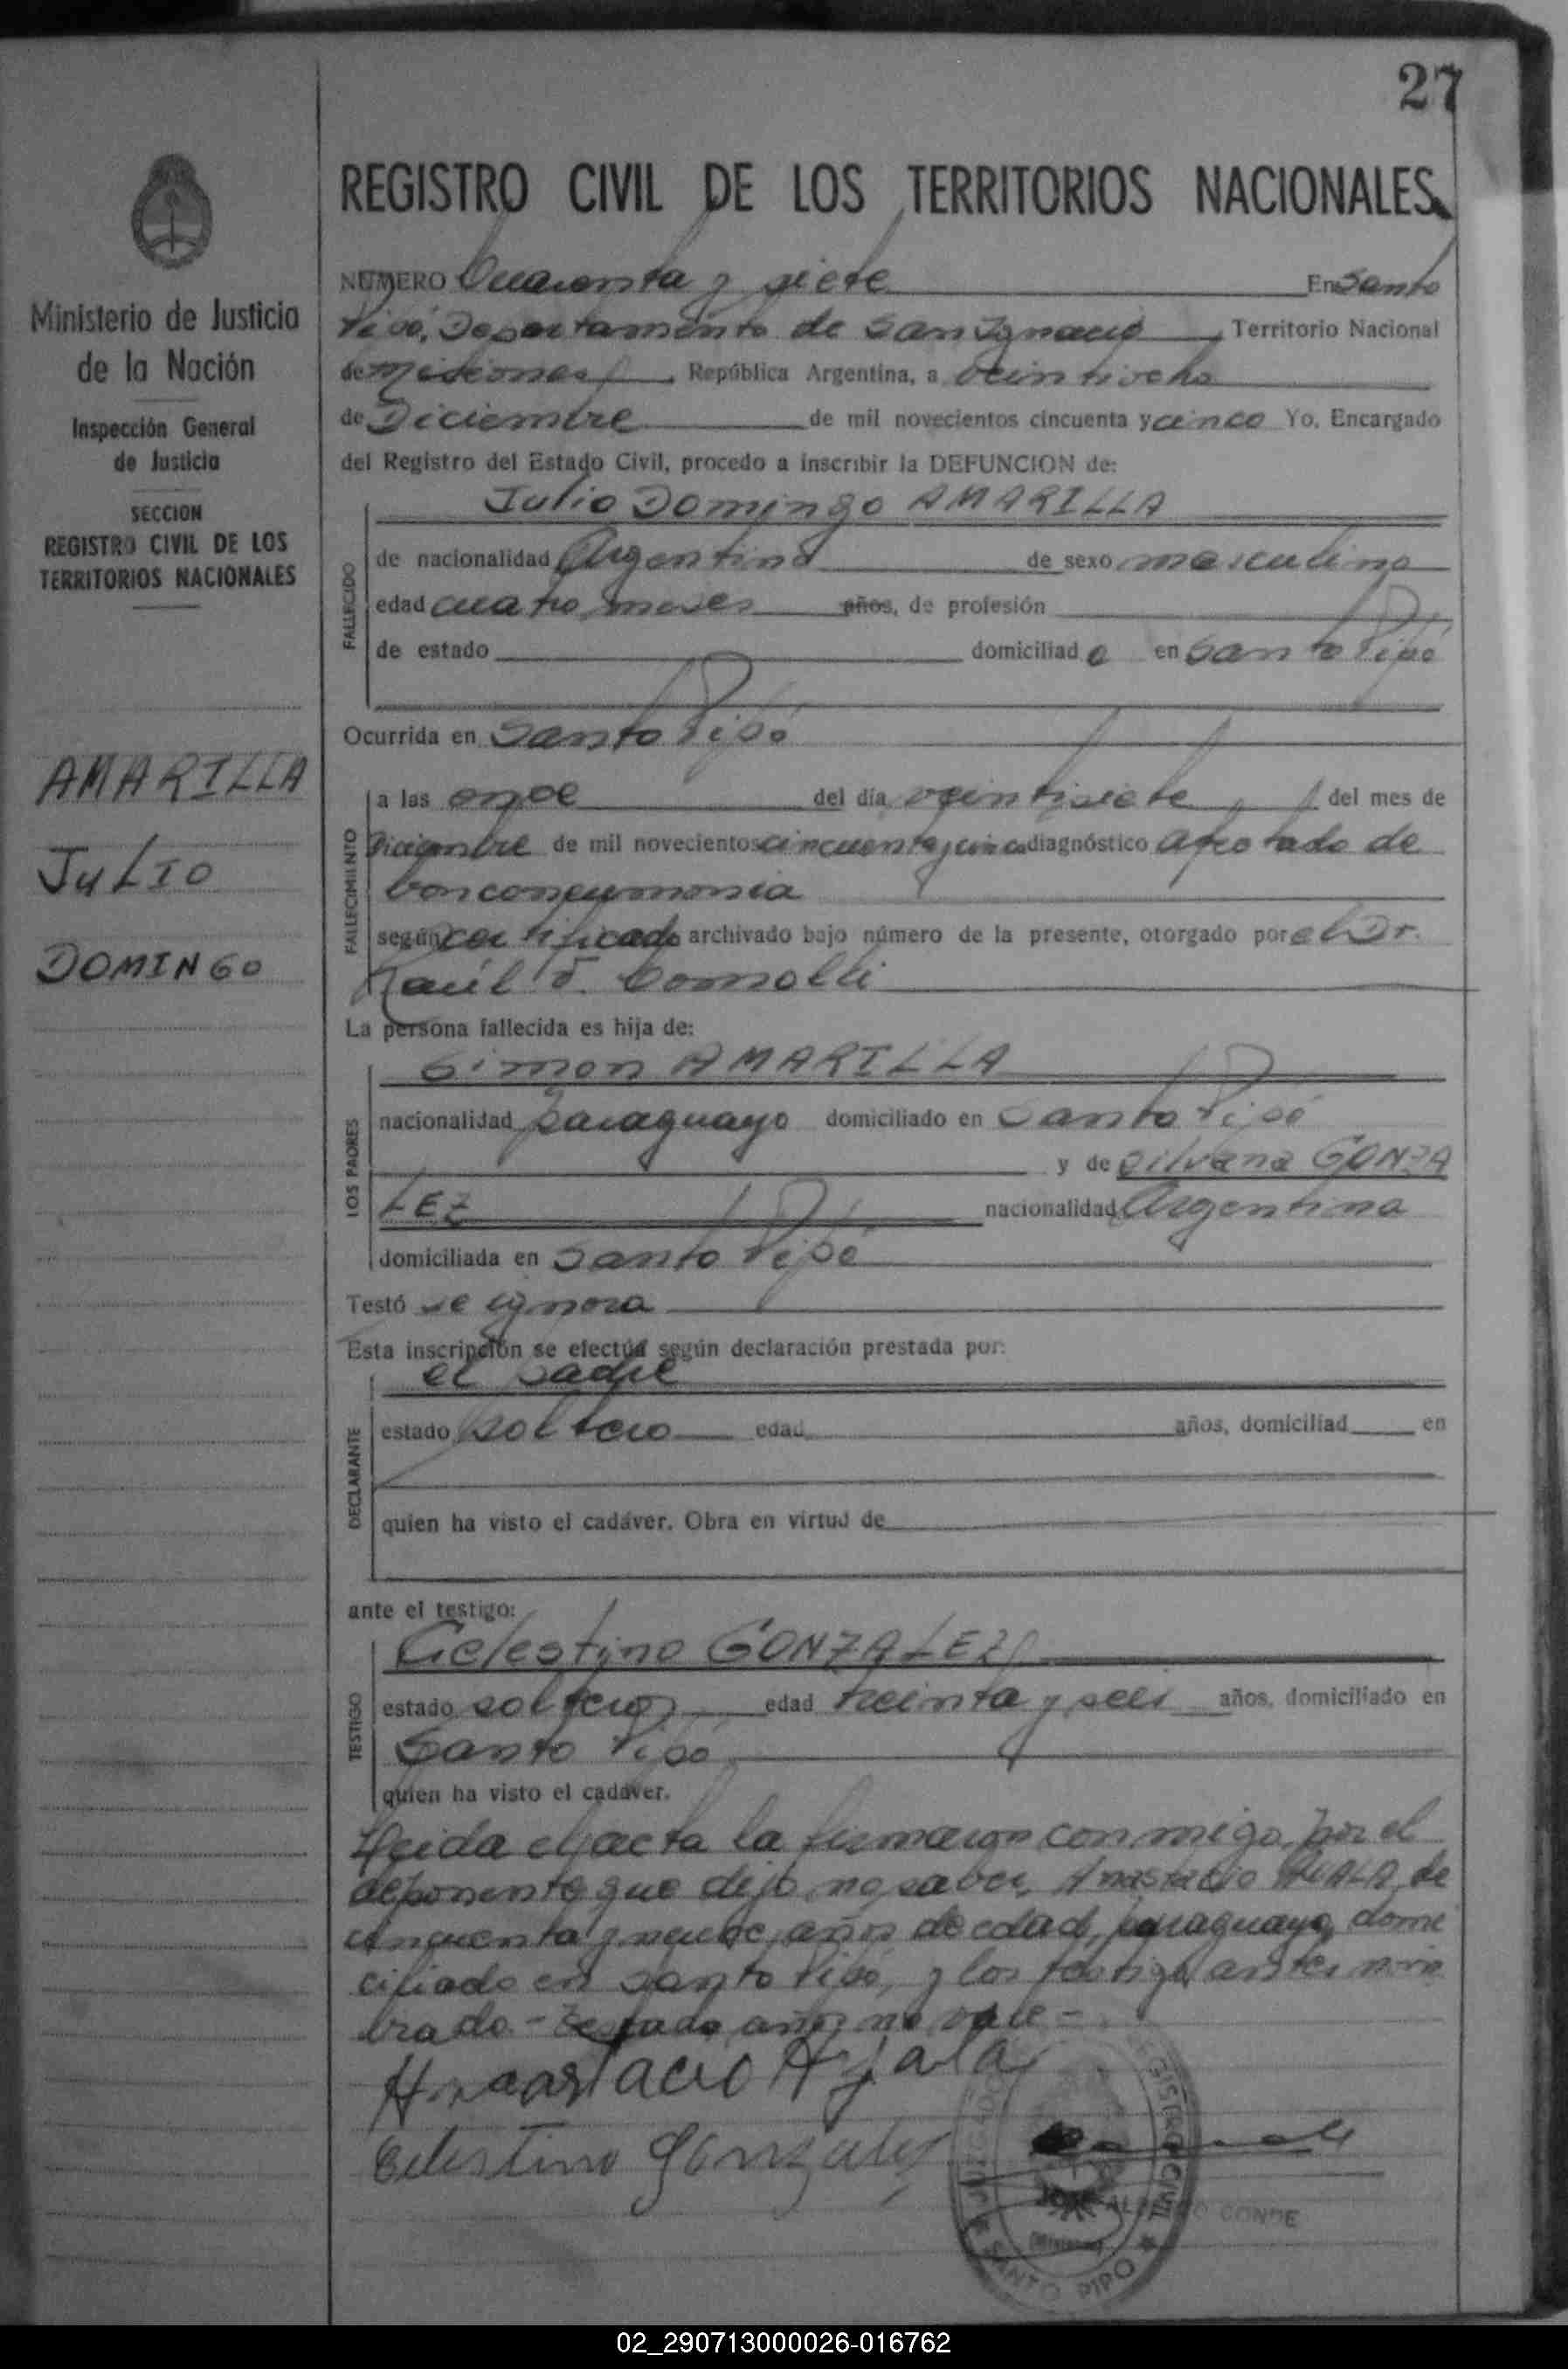 27
REGISTRO CIVIL DE LOS TERRITORIOS NACIONALES
Ministerio de Justicia
de la Nación
Inspección General
de Justicia
SECCION
REGISTRO CIVIL DE LOS
TERRITORIOS NACIONALES
AMARILLA
JULIO
DOMINGO
NUMERO Cuarenta y siete En Santo
Pipó, Departamento de San Ignacio, Territorio Nacional
de Misiones, República Argentina, a veintiocho
de Diciembre de mil novecientos cincuenta y cinco Yo, Encargado
del Registro del Estado Civil, procedo a inscribir la DEFUNCION de:
FALLECIDO
Julio Domingo AMARILLA
de nacionalidad Argentina de sexo masculino
edad cuatro meses años, de profesión
de estado domiciliad o en Santo Pipó
Ocurrida en Santo Pipó
FALLECIMIENTO
a las once del día veintisiete, del mes de
Diciembre de mil novecientos cincuenta y cinco diagnóstico afectado de
bonconeumonia
según certificado archivado bajo número de la presente, otorgado por el Dr.
Raúl
La persona fallecida es hija de:
LOS PADRES
Simon AMARILLA
nacionalidad paraguayo domiciliado en Santo Pipó
y de Silvana GONZA
LEZ nacionalidad Argentina
domiciliada en Santo Pipó
Testó se ignora
Esta inscripción se efectúa según declaración prestada por:
DECLARANTE
el padre
estado soltero edad años, domiciliad en
quien ha visto el cadáver. Obra en virtud de
ante el testigo:
TESTIGO
Celestino GONZALEZ
estado soltero edad treinta y seis años, domiciliado en
Santo Pipó
quien ha visto el cadáver.
Leida el acta la firmaron conmigo, por el
deponente que dijo no saber, Anastacio AYALA, de
cincuenta y nueve años de edad, paraguayo, domi
ciliado en Santo Pipó, y los testigo antes nom
brado.- Testado años no vale-
Anaastacio Ayala
Celestino Gonzalez
REGISTRO CIVIL
SANTO PIPO
CONDE
02_290713000026-016762